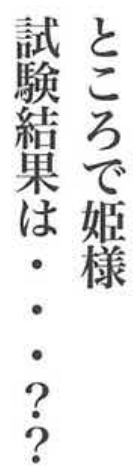 ところで姫様
試験結果は・・・??